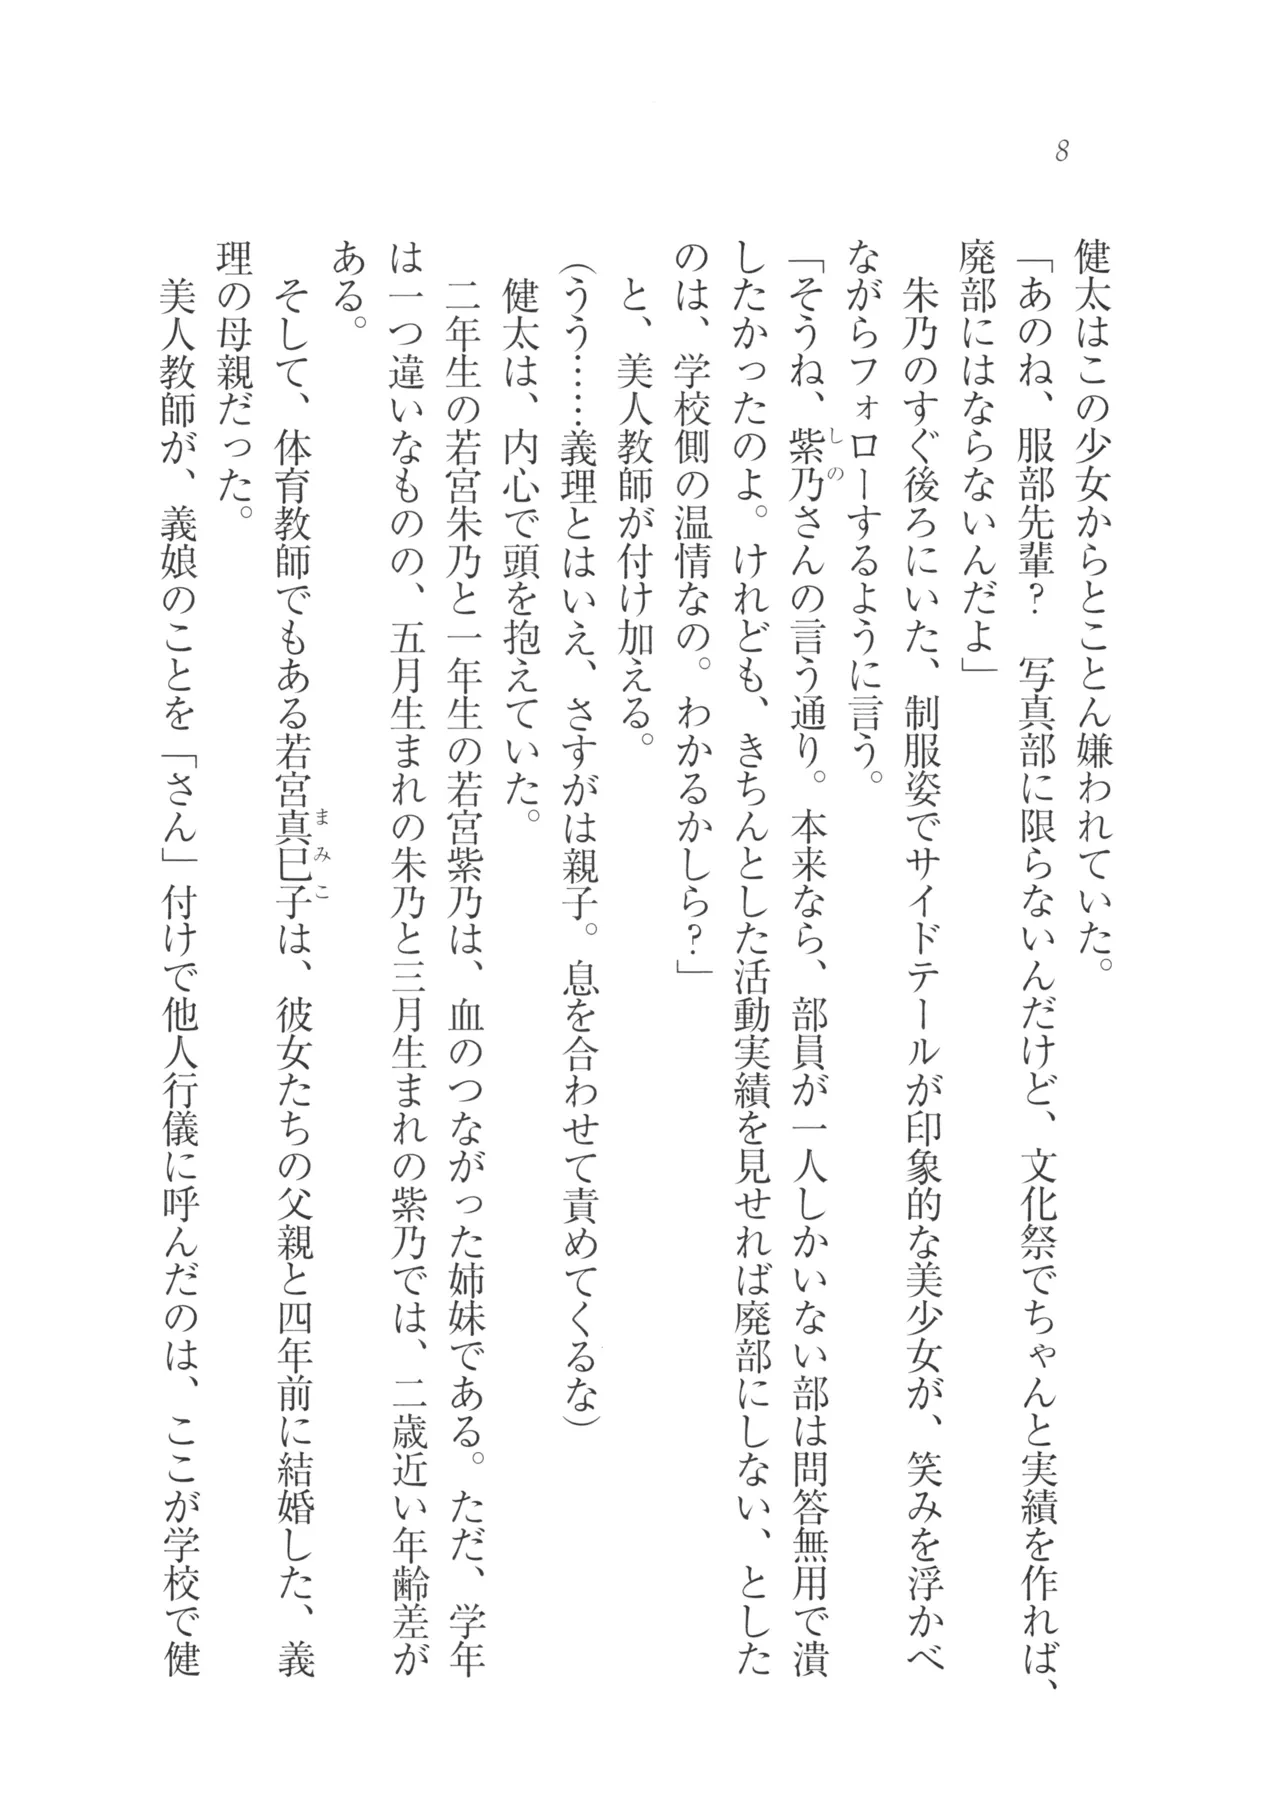 8
健太はこの少女からとことん嫌われていた。
「あのね、服部先輩？　写真部に限らないんだけど、文化祭でちゃんと実績を作れば、
廃部にはならないんだよ」
朱乃のすぐ後ろにいた、制服姿でサイドテールが印象的な美少女が、笑みを浮かべ
ながらフォローするように言う。
「そうね、紫乃さんの言う通り。本来なら、部員が一人しかいない部は問答無用で潰
しの
したかったのよ。けれども、きちんとした活動実績を見せれば廃部にしない、とした
のは、学校側の温情なの。わかるかしら？」
と、美人教師が付け加える。
（うう……義理とはいえ、さすがは親子。息を合わせて責めてくるな）
健太は、内心で頭を抱えていた。
二年生の若宮朱乃と一年生の若宮紫乃は、血のつながった姉妹である。ただ、学年
は一つ違いなものの、五月生まれの朱乃と三月生まれの紫乃では、二歳近い年齢差が
ある。
そして、体育教師でもある若宮真巳子は、彼女たちの父親と四年前に結婚した、義
まみこ
理の母親だった。
美人教師が、義娘のことを「さん」付けで他人行儀に呼んだのは、ここが学校で健